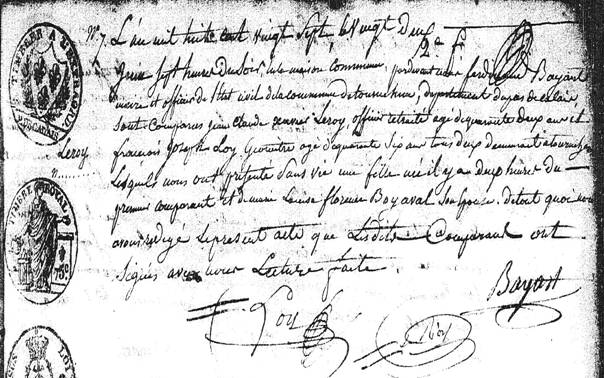 N° 7. L'an mil huit cent vingt sept le vingt deux
2e f
Juin sept heures du soir, en la maison commune, pardevant nous ferdinand Bayart
maire et officier de l'état civil de la commune de tournehem, département du pas de calais
sont Comparus jean Claude Leroy, officier retraité agé de quarante deux ans et
Leroy
françois Joseph Loy agé de quarante six ans tous deux demeurant a tournehem
Lesquels nous ont présenté sans vie une fille née il y a deux heures du
premier comparant et de marie Louise florence Boyaval son épouse. de tout quoi nous
avons rédigé le présent acte que les dits Comparant ont
signés avec nous Lecture faite.
Bayart
Loy
TIMBRE ROYAL
75c
LOI